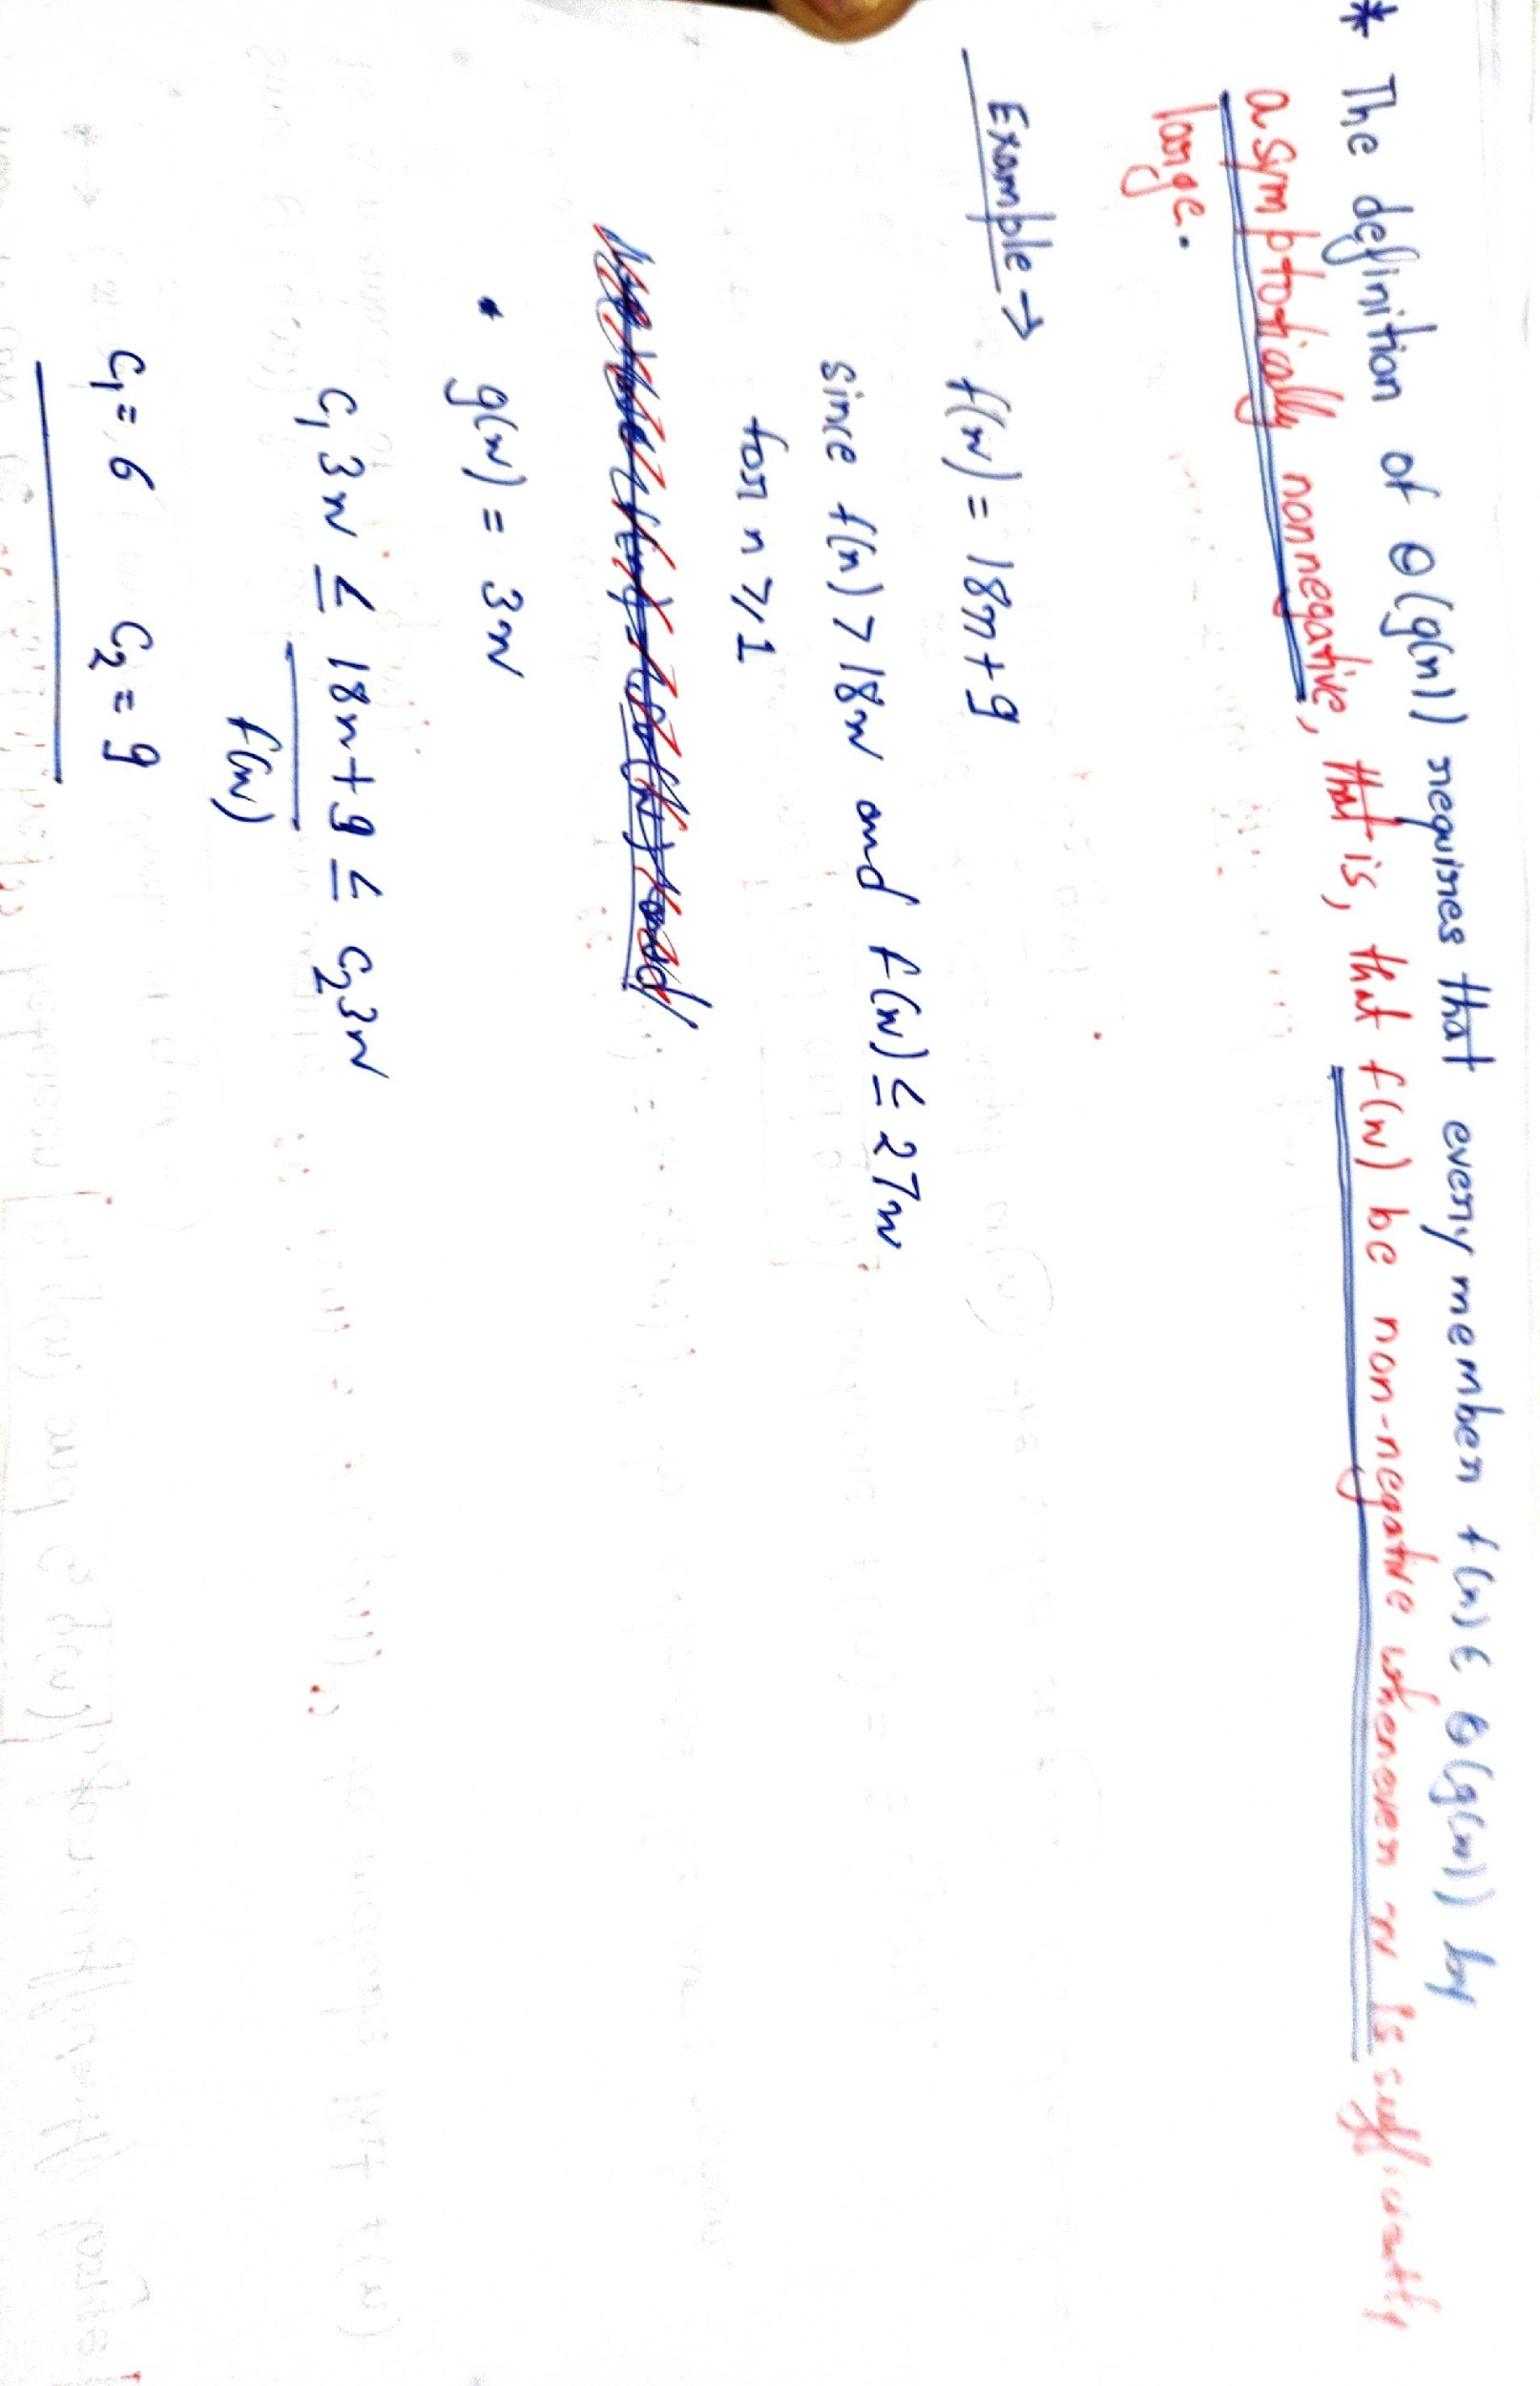 * The definition of θ(g(n)) requires that every member f(n) ∈ θ(g(n)) by
asymptotically nonnegative, that is, that f(n) be non-negative whenever n is sufficiently
large.
Example → f(n) = 18n + 9
since f(n) > 18n and f(n) ≤ 27n
for n ≥ 1
• g(n) = 3n
C₁ 3n ≤ 18n + 9 ≤ C₂ 3n
f(n)
C₁ = 6 C₂ = 9